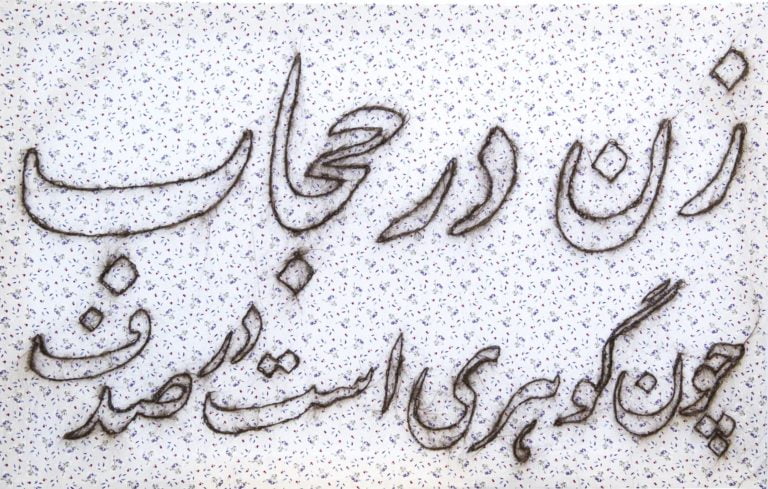 زن در حجاب
چون گوهری است در صدف